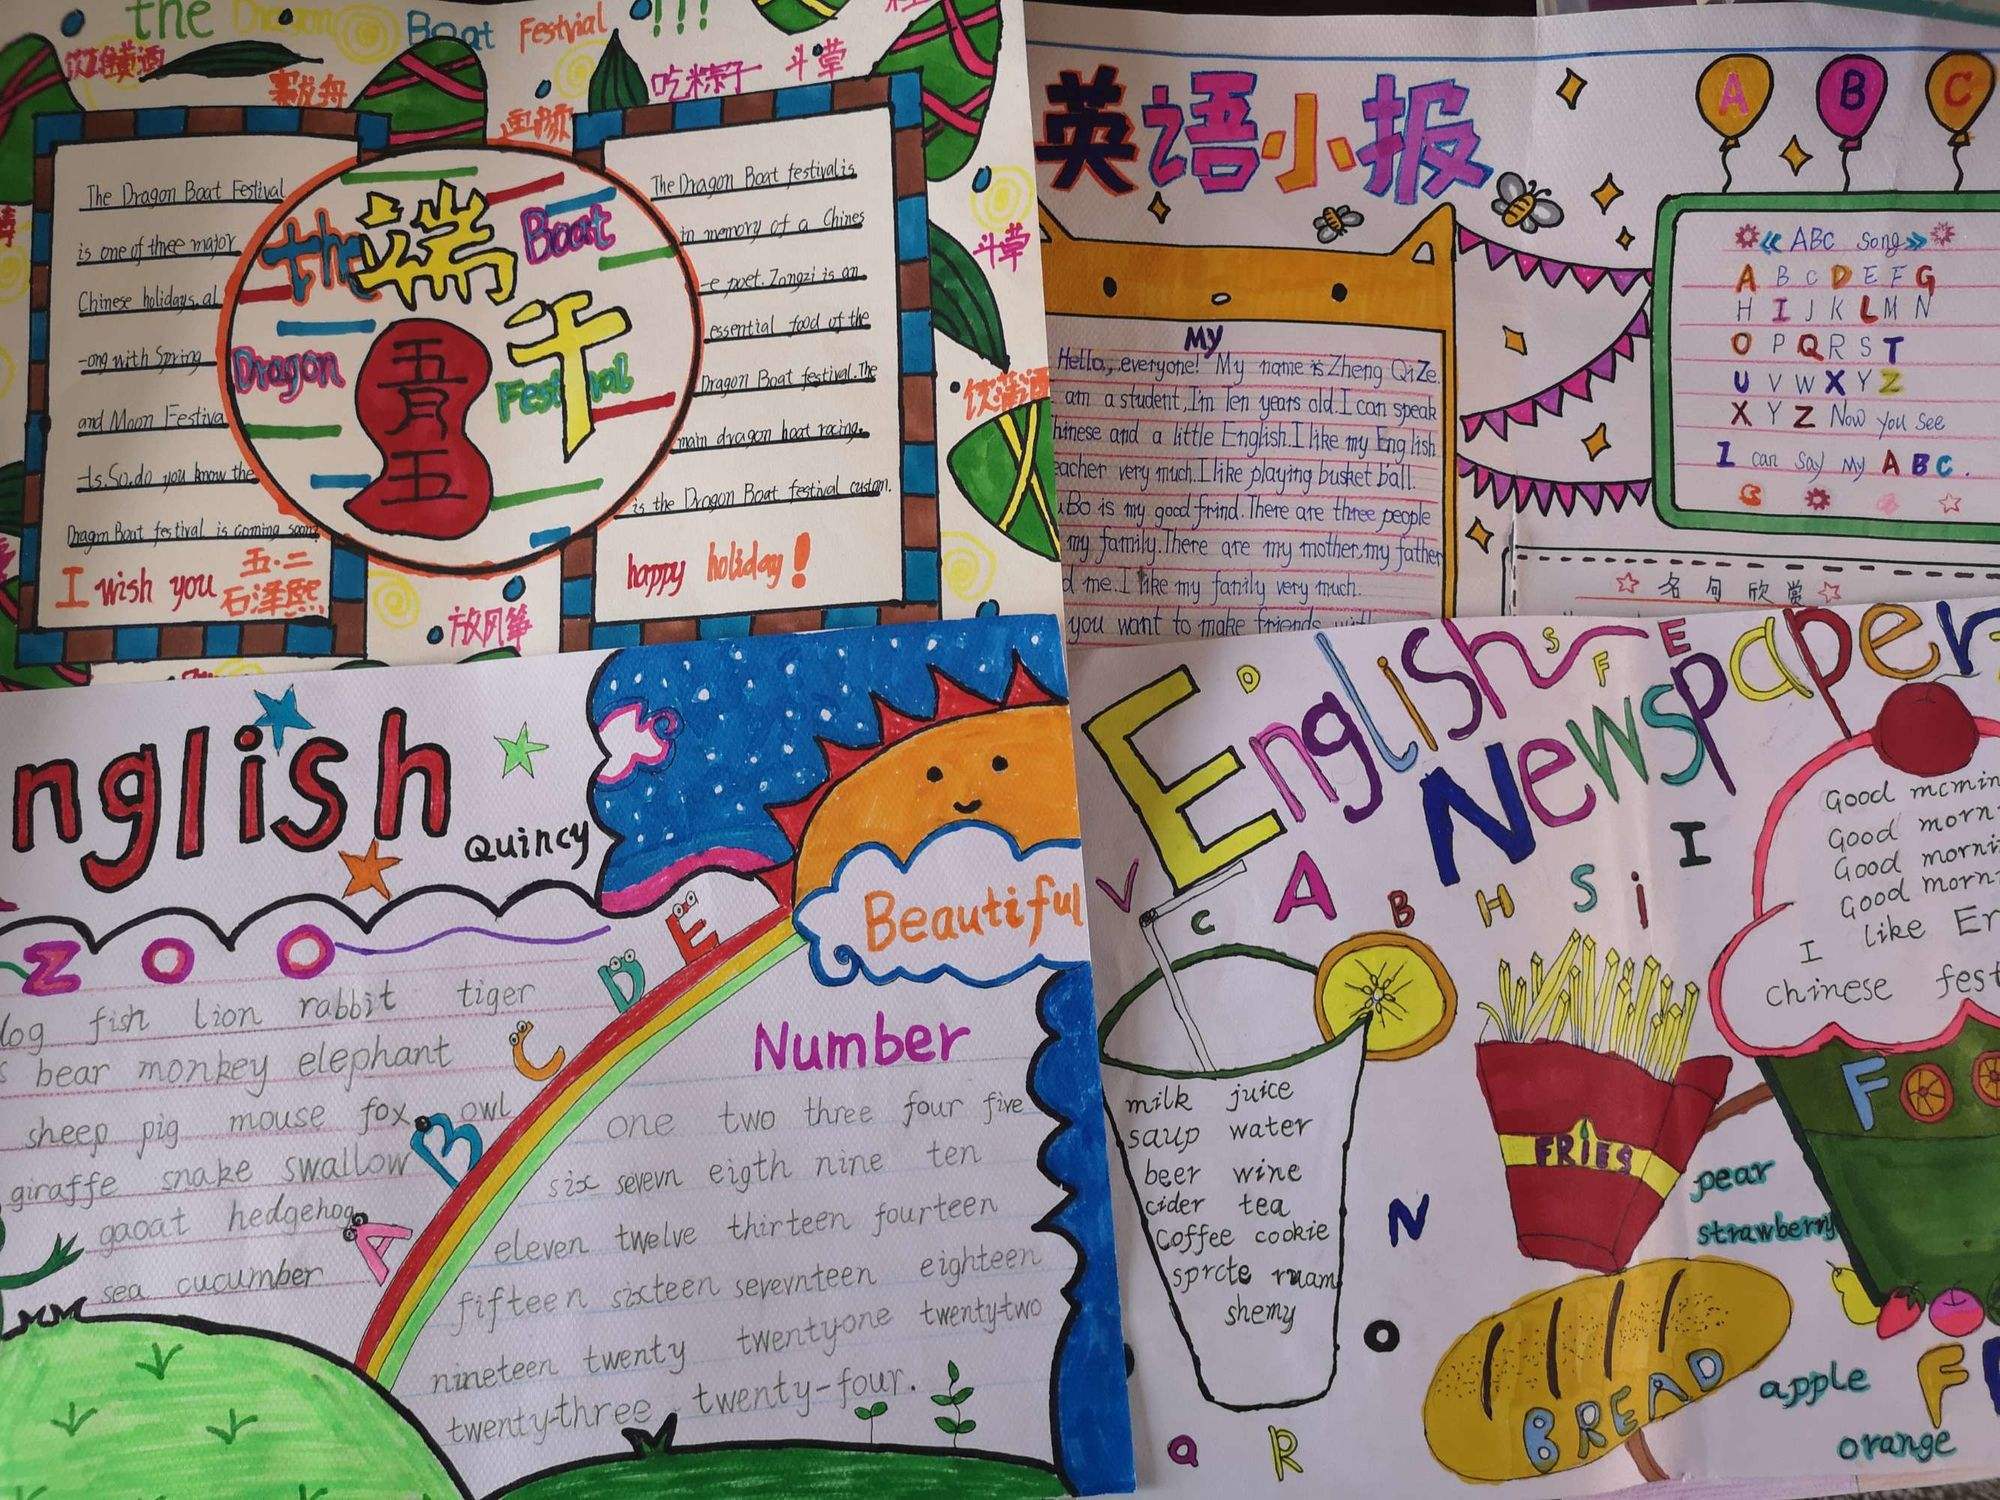 the Dragon Boat Festvial !!!
饮雄黄酒
赛龙舟
画额
吃粽子
斗草
The Dragon Boat Festival
is one of three major
Chinese holidays, al
-ong with Spring
and Moon Festiva
-ls. So, do you know the
Dragon Boat festival is coming soon?
I wish you
五·二
石泽熙
the 端午 Boat
Dragon Festival
五月五
The Dragon Boat festival is
in memory of a Chines
-e poet. Zongzi is an
essential food of the
Dragon Boat festival. The
main dragon boat racing.
is the Dragon Boat festival custom.
happy holiday!
斗草
放风筝
英语小报
A B C
My
Hello, everyone! My name is Zheng QiZe.
am a student, I'm Ten years old. I can speak
hinese and a little English. I like my English
eacher very much. I like playing busket ball.
Bo is my good frind. There are three people
my family. There are my mother, my father
d me. I like my family very much.
you want to make friends with
《ABC Song》
A B C D E F G
H I J K L M N
O P Q R S T
U V W X Y Z
X Y Z Now you see
I can say my A B C.
名句欣赏
nglish
Quincy
ZOO
dog fish lion rabbit tiger
s bear monkey elephant
sheep pig mouse fox owl
giraffe snake swallow
gaoat hedgehog
sea cucumber
A B C D E
Beautiful
Number
one two three four five
six sevevn eigth nine ten
eleven twelve thirteen fourteen
fifteen sixteen sevevnteen eighteen
nineteen twenty twentyone twenty-two
twenty-three twenty-four.
English Newspaper
D S F E
V C A B H S i I
Good mcmin
Good morn
Good morni
Good morn
I like En
chinese fest
milk juice
saup water
beer wine
cider tea
coffee cookie
sprcte
shemy
FRIES
FO
N
O
pear
strawberry
BREAD
apple
orange
F
Q R